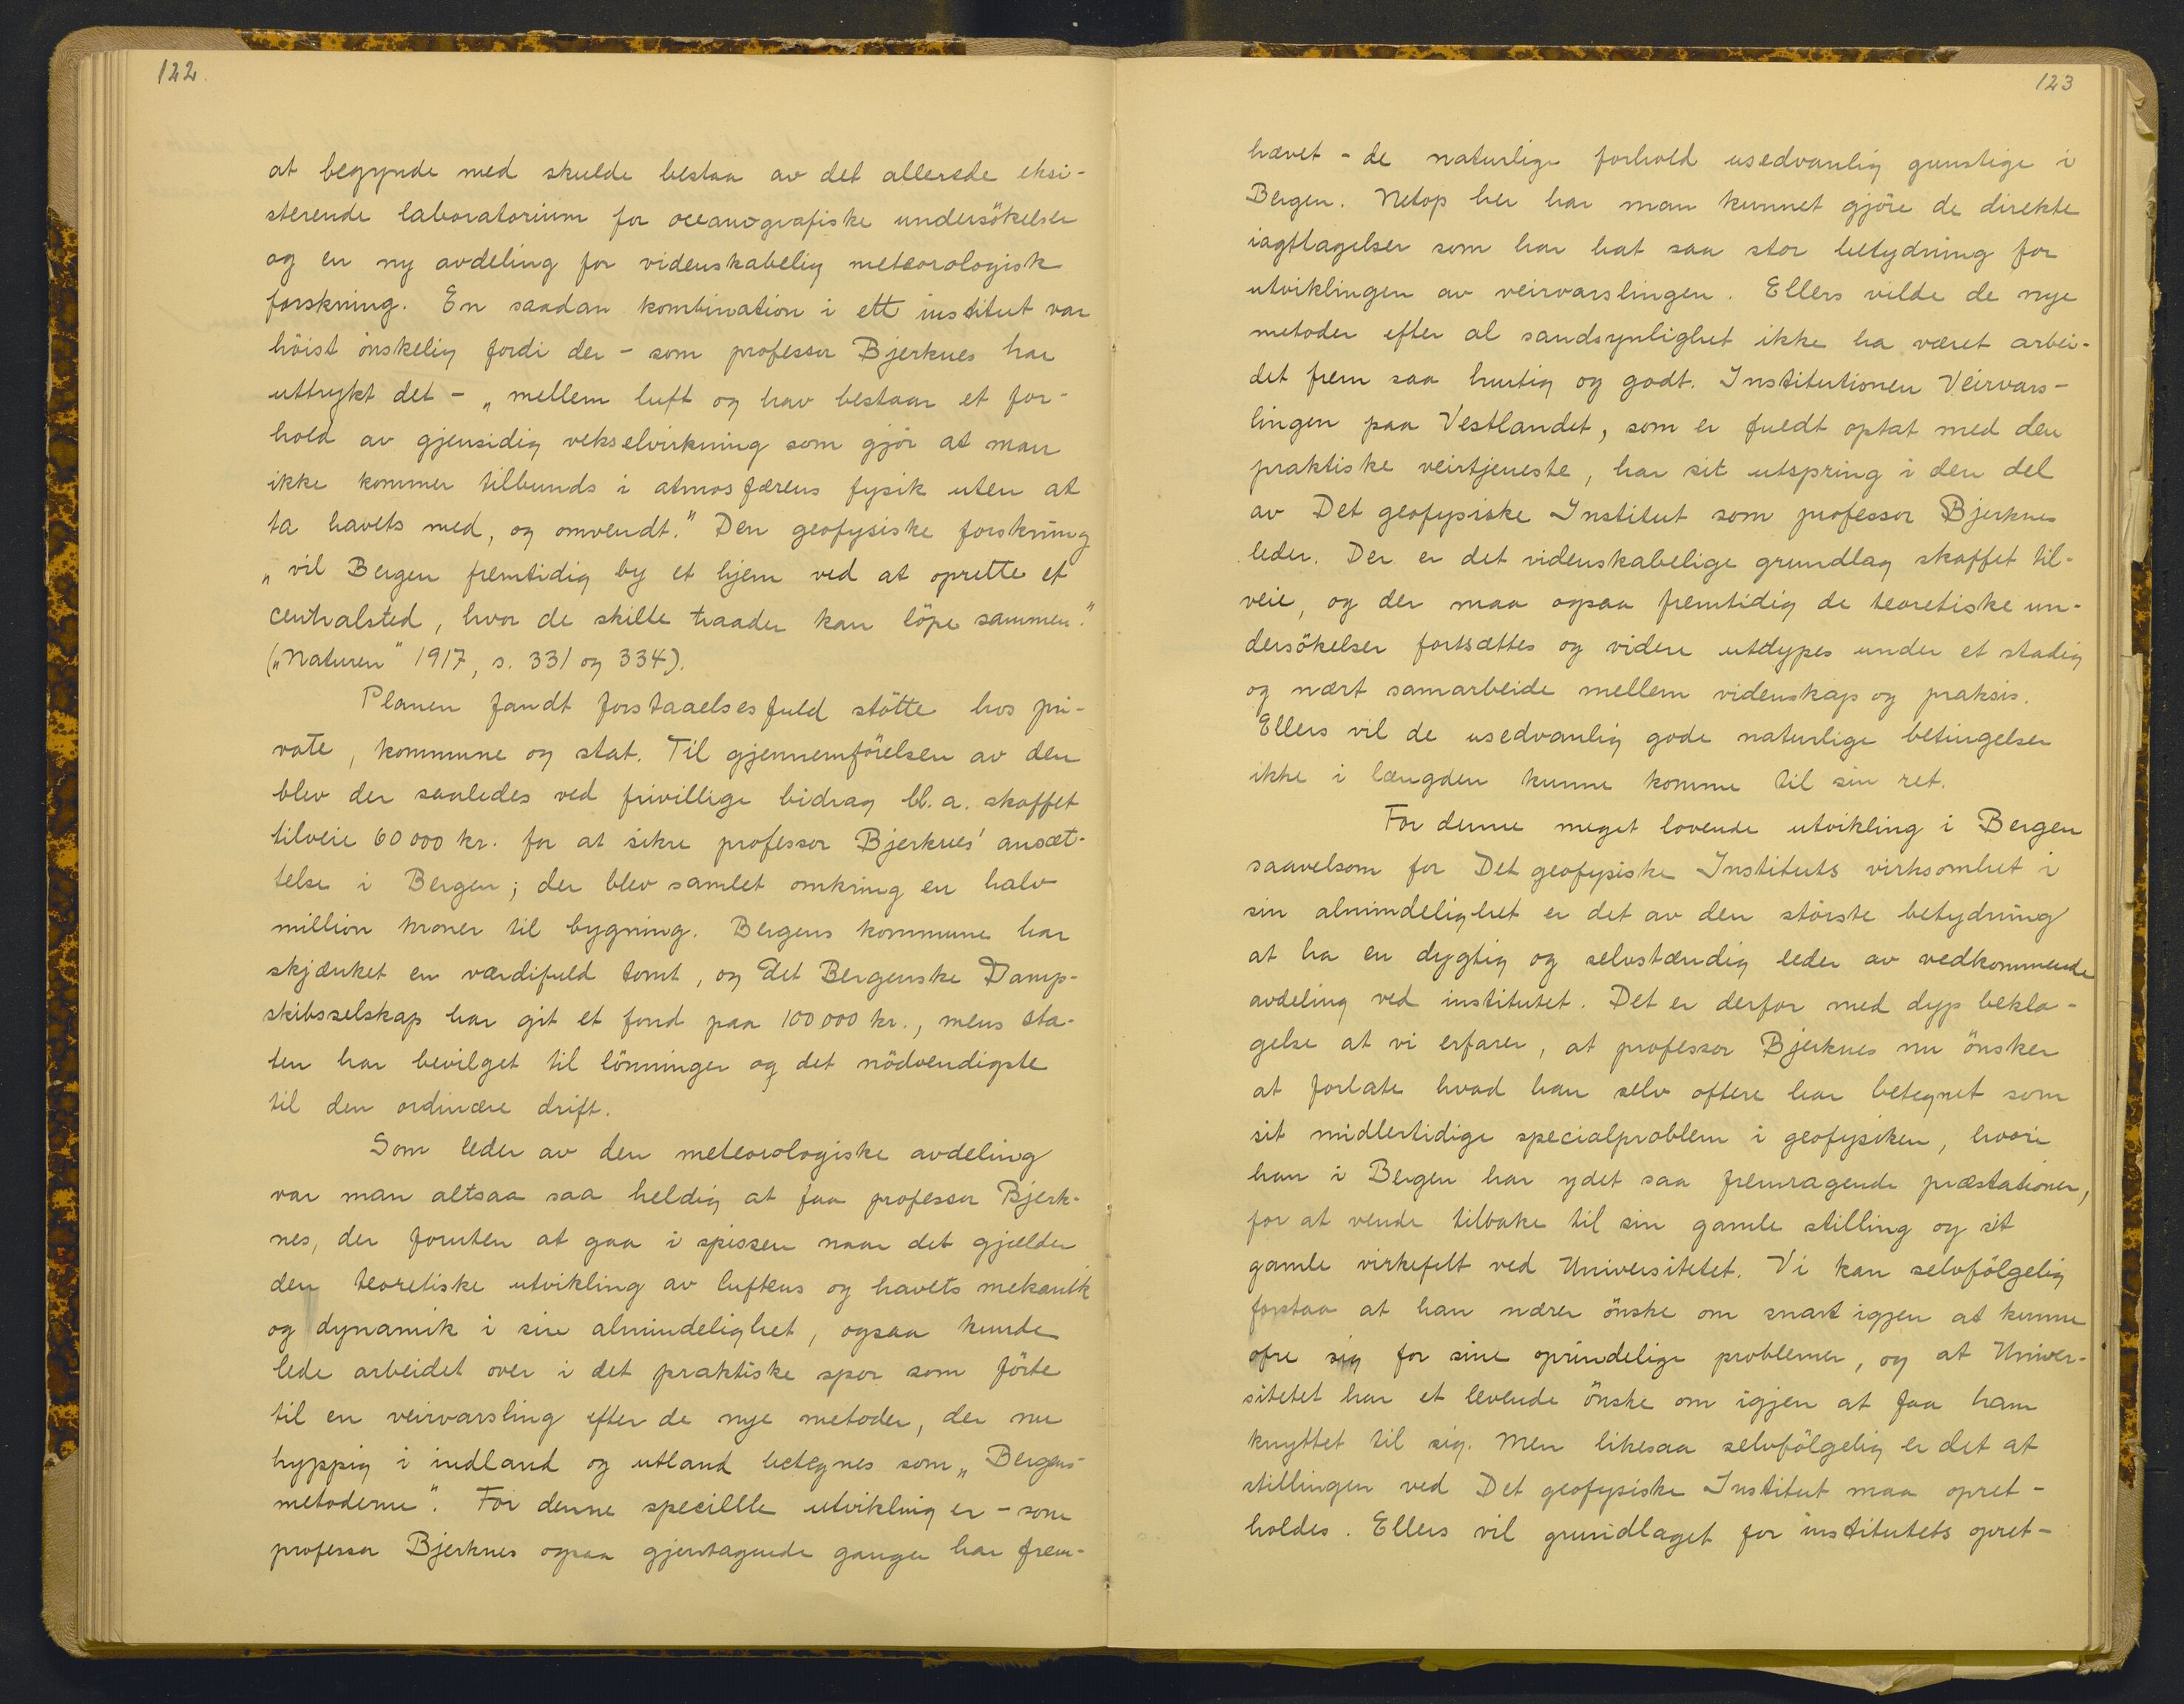 122.
at begynde med skulde bestaa av det allerede eksi-
sterende laboratorium for oceanografiske undersökelser
og en ny avdeling for videnskabelig meteorologisk
forskning. En saadan kombination i ett institut var
höist önskelig fordi der - som professor Bjerknes har
uttrykt det - „mellem luft og hav bestaar et for-
hold av gjensidig vekselvirkning som gjör at man
ikke kommer tilbunds i atmosfærens fysik uten at
ta havets med, og omvendt." Den geofysiske forskning
„vil Bergen fremtidig by et hjem ved at oprette et
centralsted, hvor de skilte traader kan löpe sammen."
(„Naturen" 1917, s. 331 og 334).
Planen fandt forstaaelsesfuld stötte hos pri-
vate, kommune og stat. Til gjennemförelsen av den
blev der saaledes ved frivillige bidrag bl.a. skaffet
tilveie 60000 kr. for at sikre professor Bjerknes' ansæt-
telse i Bergen; der blev samlet omkring en halv
million kroner til bygning. Bergens kommune har
skjænket en værdifuld tomt, og Det Bergenske Damp-
skibsselskap har git et fond paa 100000 kr., mens sta-
ten har bevilget til lönninger og det nödvendigste
til den ordinære drift.
Som leder av den meteorologiske avdeling
var man altsaa saa heldig at faa professor Bjerk-
nes, der foruten at gaa i spissen naar det gjælder
den teoretiske utvikling av luftens og havets mekanik
og dynamik i sin almindelighet, ogsaa kunde
lede arbeidet over i det praktiske spor som förte
til en veirvarsling efter de nye metoder, der nu
hyppig i indland og utland betegnes som „Bergens-
metoderne". For denne specillle utvikling er - som
professor Bjerknes ogsaa gjentagende ganger har frem-
123
hævet - de naturlige forhold usedvanlig gunstige i
Bergen. Netop her har man kunnet gjöre de direkte
iagttagelser som har hat saa stor betydning for
utviklingen av veirvarslingen. Ellers vilde de nye
metoder efter al sandsynlighet ikke ha været arbei-
det frem saa hurtig og godt. Institutionen Veirvars-
lingen paa Vestlandet, som er fuldt optat med den
praktiske veirtjeneste, har sit utspring i den del
av Det geofysiske Institut som professor Bjerknes
leder. Der er det videnskabelige grundlag skaffet til-
veie, og der maa ogsaa fremtidig de teoretiske un-
dersökelser fortsættes og videre utdypes under et stadig
og nært samarbeide mellem videnskap og praksis.
Ellers vil de usedvanlig gode naturlige betingelser
ikke i længden kunne komme til sin ret.
For denne meget lovende utvikling i Bergen
saavelsom for Det geofysiske Instituts virksomhet i
sin almindelighet er det av den störste betydning
at ha en dygtig og selvstændig leder av vedkommende
avdeling ved institutet. Det er derfor med dyp bekla-
gelse at vi erfarer, at professor Bjerknes nu önsker
at forlate hvad han selv oftere har betegnet som
sit midlertidige specialproblem i geofysiken, hvori
han i Bergen har ydet saa fremragende præstationer,
for at vende tilbake til sin gamle stilling og sit
gamle virkefelt ved Universitetet. Vi kan selvfölgelig
forstaa at han nærer önske om snart igjen at kunne
ofre sig for sine oprindelige problemer, og at Univer-
sitetet har et levende önske om igjen at faa ham
knyttet til sig. Men likesaa selvfölgelig er det at
stillingen ved Det geofysiske Institut maa opret-
holdes. Ellers vil grundlaget for institutets opret-